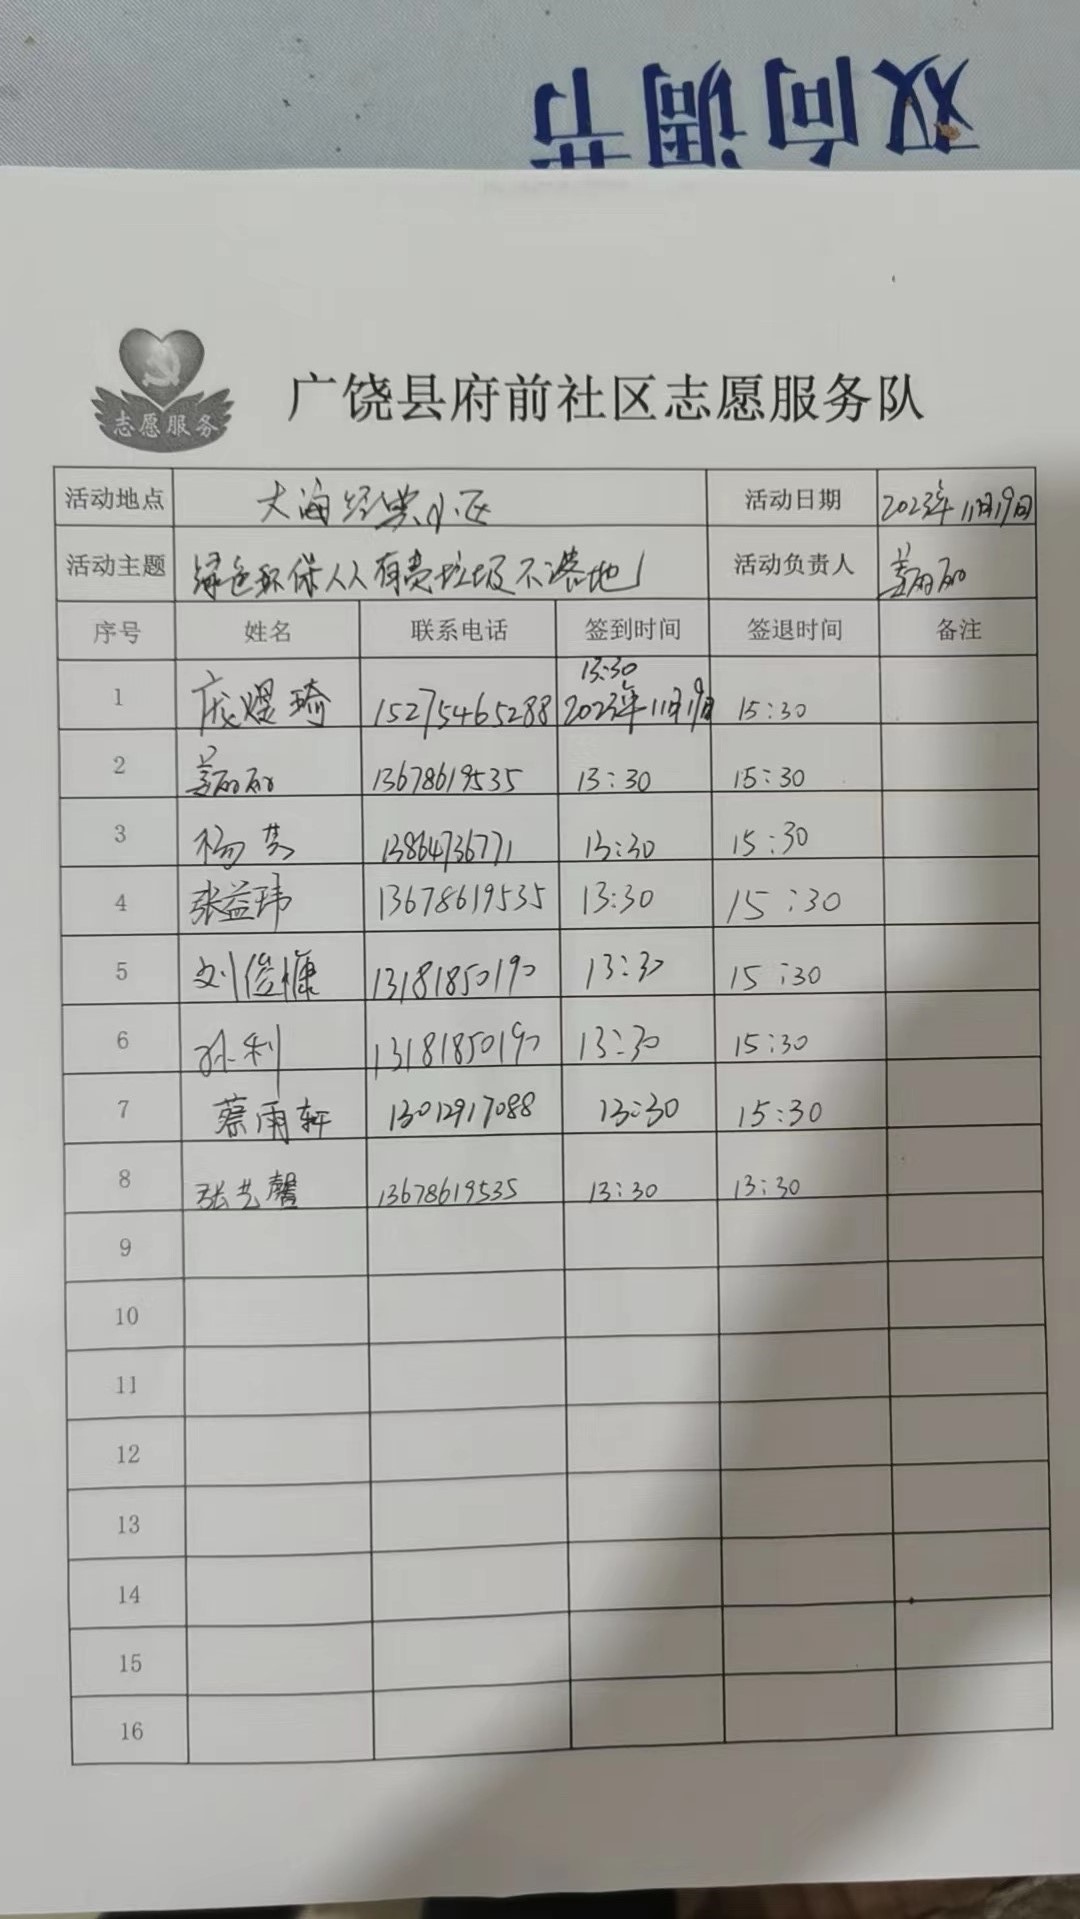 双向调节
志愿服务
广饶县府前社区志愿服务队
活动地点 大海经典小区 活动日期 2023年11月19日
活动主题 绿色环保人人有责垃圾不落地! 活动负责人 姜丽丽
序号 姓名 联系电话 签到时间 签退时间 备注
13:30
1 庞煜琦 15275465288 2023年11月19日 15:30
2 姜丽丽 13678619535 13:30 15:30
3 杨 13864736771 13:30 15:30
4 张益玮 13678619535 13:30 15:30
5 刘俊慷 13181850190 13:30 15:30
6 孙利 13181850190 13:30 15:30
7 蔡雨轩 13012917088 13:30 15:30
8 张艺馨 13678619535 13:30 13:30
9
10
11
12
13
14
15
16